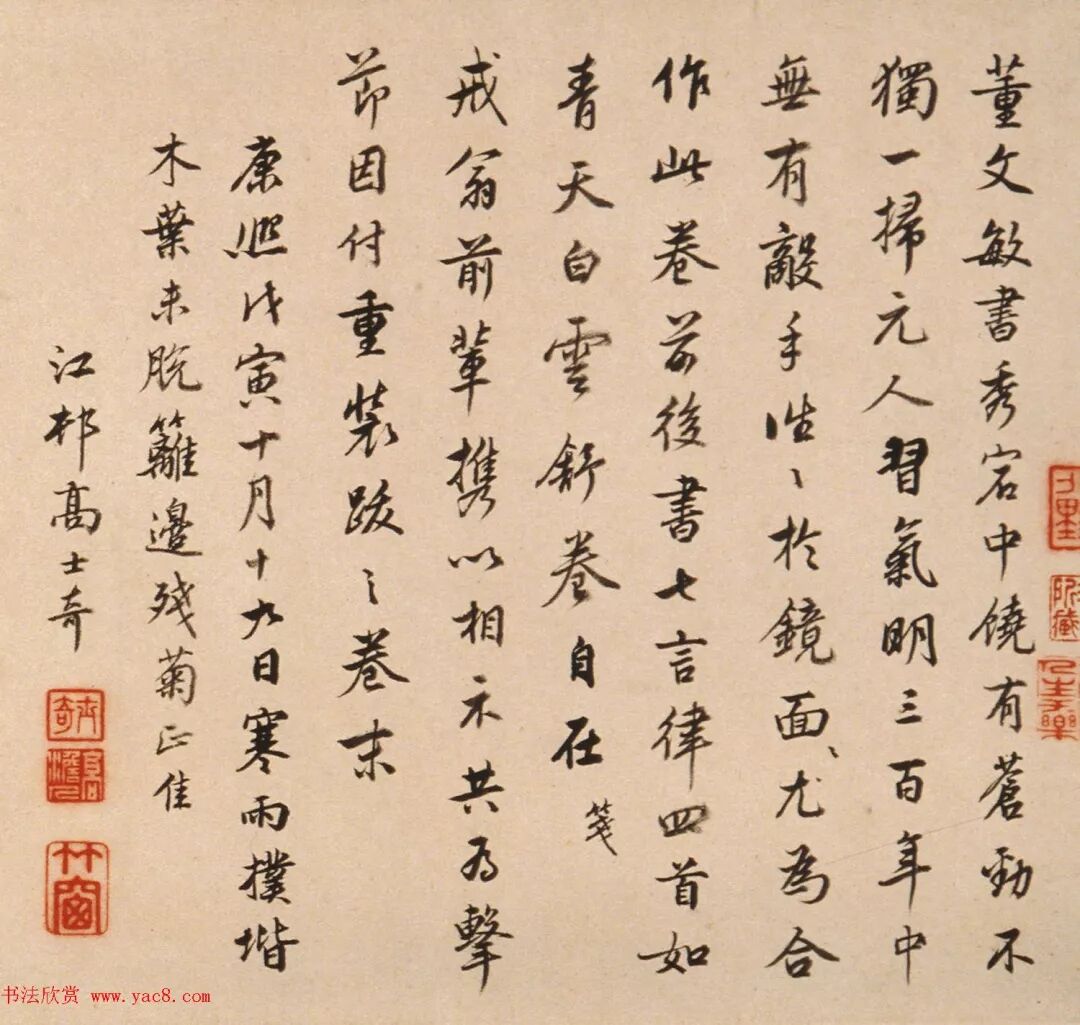 董文敏書秀宕中饒有蒼勁不
獨一掃元人習氣明三百年中
無有敵手往〻於鏡面〻尤為合
作此卷前後書七言律四首如
青天白雲舒卷自在
箋
戒翁前輩携以相示共為擊
節因付重裝跋之卷末
康熙戊寅十月十九日寒雨撲堦
木葉未脫籬邊殘菊正佳
江邨高士奇
竹窗
书法欣赏 www.yac8.com